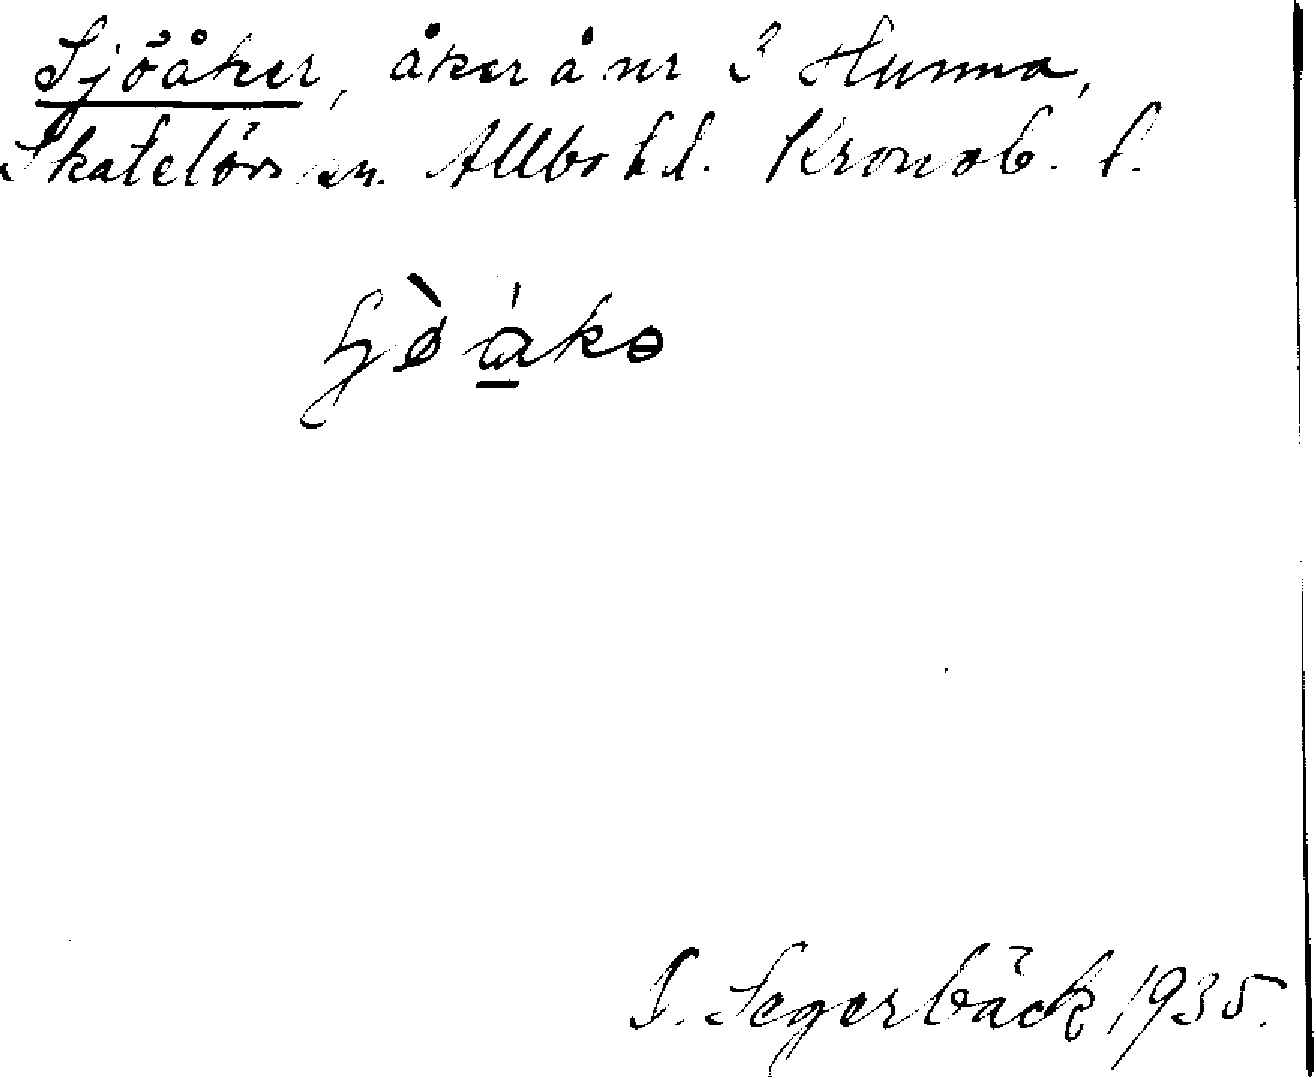 Sjöåker, åker å nr 3 Hunna,
Skatelövs sn. Allbo hd. Kronob. l.
Segerbäck 1935.